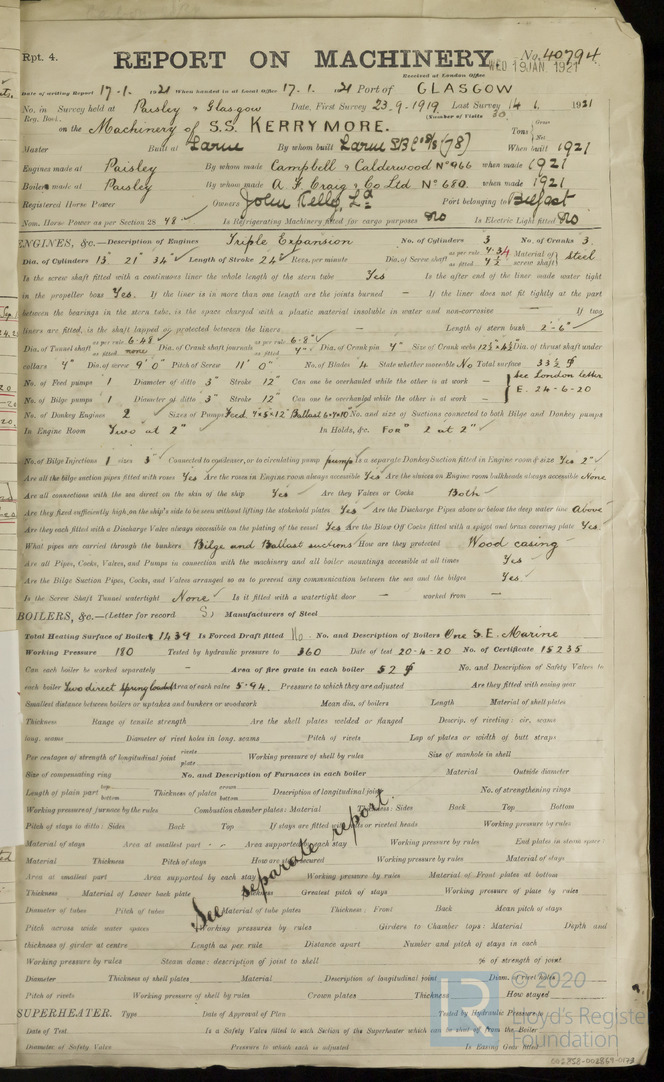 Rpt. 4.
REPORT ON MACHINERY. No. 40794
Received at London Office WED 19 JAN 1921
Date of writing Report 17-1- 1921 When handed in at Local Office 17.1. 1921 Port of GLASGOW
No. in Survey held at Paisley & Glasgow Date, First Survey 23.9.1919 Last Survey 14 1. 1921
Reg. Book. (Number of Visits 30
on the Machinery of S.S. KERRYMORE. Tons Gross Net
Master Built at Larne By whom built Larne SB Co (78) When built 1921
Engines made at Paisley By whom made Campbell & Calderwood No 466 when made 1921
Boilers made at Paisley By whom made A F Craig & Co Ltd No 680. when made 1921
Registered Horse Power Owners John Kelly, Ld Port belonging to Belfast
Nom. Horse Power as per Section 28 48 Is Refrigerating Machinery fitted for cargo purposes No Is Electric Light fitted No
ENGINES, &c.—Description of Engines Triple Expansion No. of Cylinders 3 No. of Cranks 3.
Dia. of Cylinders 13" 21" 34" Length of Stroke 24" Revs. per minute Dia. of Screw shaft as per rule as fitted Material of screw shaft steel
Is the screw shaft fitted with a continuous liner the whole length of the stern tube Yes Is the after end of the liner made water tight
in the propeller boss Yes. If the liner is in more than one length are the joints burned — If the liner does not fit tightly at the part
between the bearings in the stern tube, is the space charged with a plastic material insoluble in water and non-corrosive — If two
liners are fitted, is the shaft lapped or protected between the liners — Length of stern bush 2'-6"
Dia. of Tunnel shaft as per rule 6.48 as fitted none Dia. of Crank shaft journals as per rule as fitted Dia. of Crank pin Size of Crank webs Dia. of thrust shaft under
collars Dia. of screw 9' 0" Pitch of Screw 11' 0" No. of Blades 4 State whether moveable No Total surface 33½
No. of Feed pumps 1 Diameter of ditto 3" Stroke 12" Can one be overhauled while the other is at work — See London letter
No. of Bilge pumps 1 Diameter of ditto 3" Stroke 12" Can one be overhauled while the other is at work — E. 24-6-20
No. of Donkey Engines 2 Sizes of Pumps Feed Ballast No. and size of Suctions connected to both Bilge and Donkey pumps
In Engine Room Two at 2" In Holds, &c. 2 at 2"
No. of Bilge Injections 1 sizes 3" Connected to condenser, or to circulating pump pump Is a separate Donkey Suction fitted in Engine room & size Yes 2"
Are all the bilge suction pipes fitted with roses Yes Are the roses in Engine room always accessible Yes Are the sluices on Engine room bulkheads always accessible None
Are all connections with the sea direct on the skin of the ship Yes Are they Valves or Cocks Both
Are they fixed sufficiently high on the ship's side to be seen without lifting the stokehold plates Yes Are the Discharge Pipes above or below the deep water line Above
Are they each fitted with a Discharge Valve always accessible on the plating of the vessel Yes Are the Blow Off Cocks fitted with a spigot and brass covering plate Yes.
What pipes are carried through the bunkers Bilge and Ballast suctions How are they protected Wood casing
Are all Pipes, Cocks, Valves, and Pumps in connection with the machinery and all boiler mountings accessible at all times Yes
Are the Bilge Suction Pipes, Cocks, and Valves arranged so as to prevent any communication between the sea and the bilges Yes.
Is the Screw Shaft Tunnel watertight None Is it fitted with a watertight door — worked from —
BOILERS, &c.—(Letter for record S) Manufacturers of Steel
Total Heating Surface of Boilers 1439 Is Forced Draft fitted No No. and Description of Boilers One S.E. Marine
Working Pressure 180 Tested by hydraulic pressure to 360 Date of test 20-4-20 No. of Certificate 15235
Can each boiler be worked separately — Area of fire grate in each boiler 52 No. and Description of Safety Valves to
each boiler Two direct spring loaded Area of each valve 5.94. Pressure to which they are adjusted Are they fitted with easing gear
Smallest distance between boilers or uptakes and bunkers or woodwork Mean dia. of boilers Length Material of shell plates
Thickness Range of tensile strength Are the shell plates welded or flanged Descrip. of riveting: cir. seams
long. seams Diameter of rivet holes in long. seams Pitch of rivets Lap of plates or width of butt straps
Per centages of strength of longitudinal joint rivets plate Working pressure of shell by rules Size of manhole in shell
Size of compensating ring No. and Description of Furnaces in each boiler Material Outside diameter
Length of plain part top bottom Thickness of plates crown bottom Description of longitudinal joint No. of strengthening rings
Working pressure of furnace by the rules Combustion chamber plates: Material Thickness: Sides Back Top Bottom
Pitch of stays to ditto: Sides Back Top If stays are fitted with nuts or riveted heads Working pressure by rules
Material of stays Area at smallest part Area supported by each stay Working pressure by rules End plates in steam space:
Material Thickness Pitch of stays How are stays secured Working pressure by rules Material of stays
Area at smallest part Area supported by each stay Working pressure by rules Material of Front plates at bottom
Thickness Material of Lower back plate Thickness Greatest pitch of stays Working pressure of plate by rules
Diameter of tubes Pitch of tubes Material of tube plates Thickness: Front Back Mean pitch of stays
Pitch across wide water spaces Working pressures by rules Girders to Chamber tops: Material Depth and
thickness of girder at centre Length as per rule Distance apart Number and pitch of stays in each
Working pressure by rules Steam dome: description of joint to shell % of strength of joint
Diameter Thickness of shell plates Material Description of longitudinal joint Diam. of rivet holes
Pitch of rivets Working pressure of shell by rules Crown plates Thickness How stayed
See separate report.
SUPERHEATER. Type Date of Approval of Plan Tested by Hydraulic Pressure to
Date of Test Is a Safety Valve fitted to each Section of the Superheater which can be shut off from the Boiler
Diameter of Safety Valve Pressure to which each is adjusted Is Easing Gear fitted
© 2020
Lloyd's Register
Foundation
002858-002869-0173